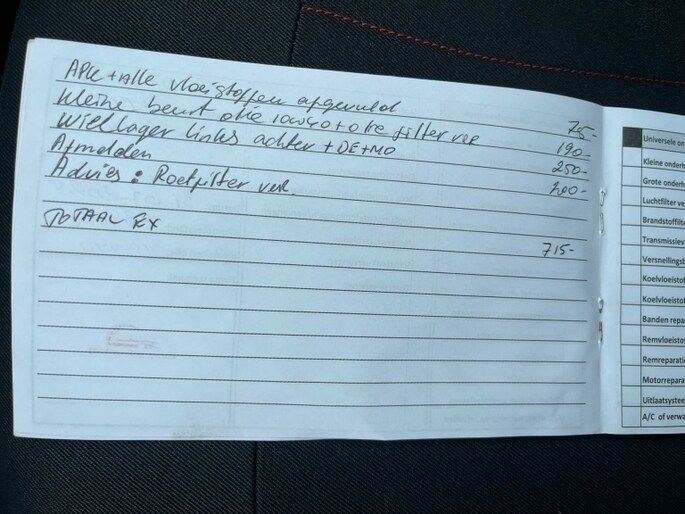 APK + Alle vloeistoffen afgevuld 75-
Kleine beurt olie 10w40 + olie filter ver 190-
Wiellager links achter + DE+MO 250-
Afmelden 200-
Advies: Roetfilter ver.
TOTAAL EX 715-
Universele on
Kleine onderh
Grote onderh
Luchtfilter ve
Brandstoffilte
Transmissiev
Versnellingsb
Koelvloeistof
Koelvloeistof
Banden repa
Remvloeistof
Remreparatie
Motorrepara
Uitlaatsystee
A/C of verwa